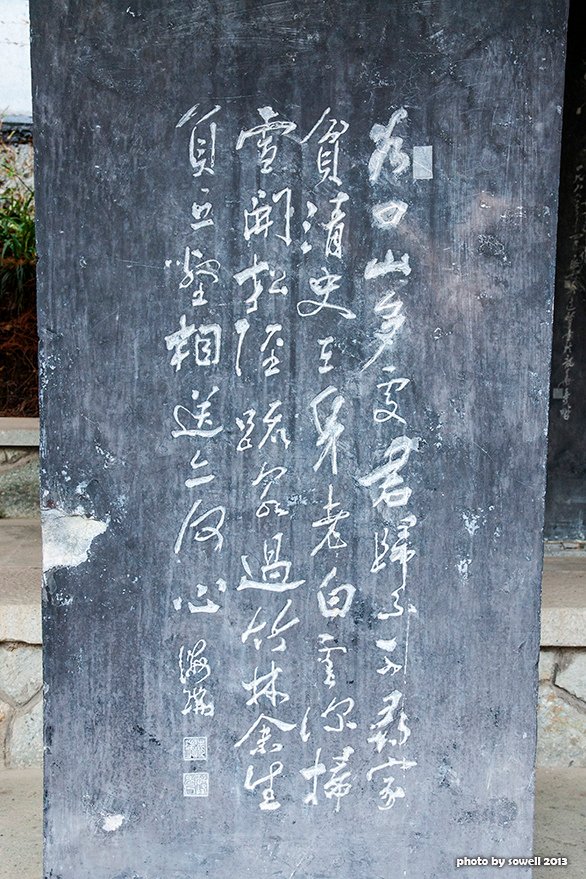 谷口山多處君歸不可尋家
貧清史在身老白雲深掃
雪開松徑疏泉過竹林余生
負丘壑相送亦何心 海瑞
photo by sowell 2013